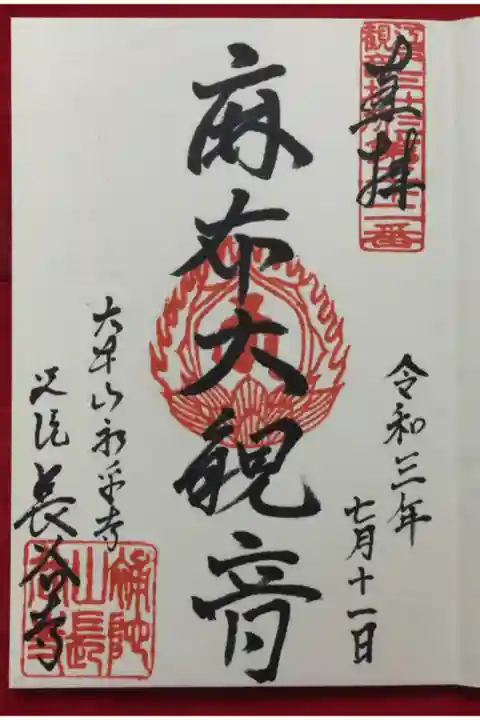 奉拝
令和三年
七月十一日
麻布大観音
大本山永平寺
別院長谷寺
補陀
山長
谷寺